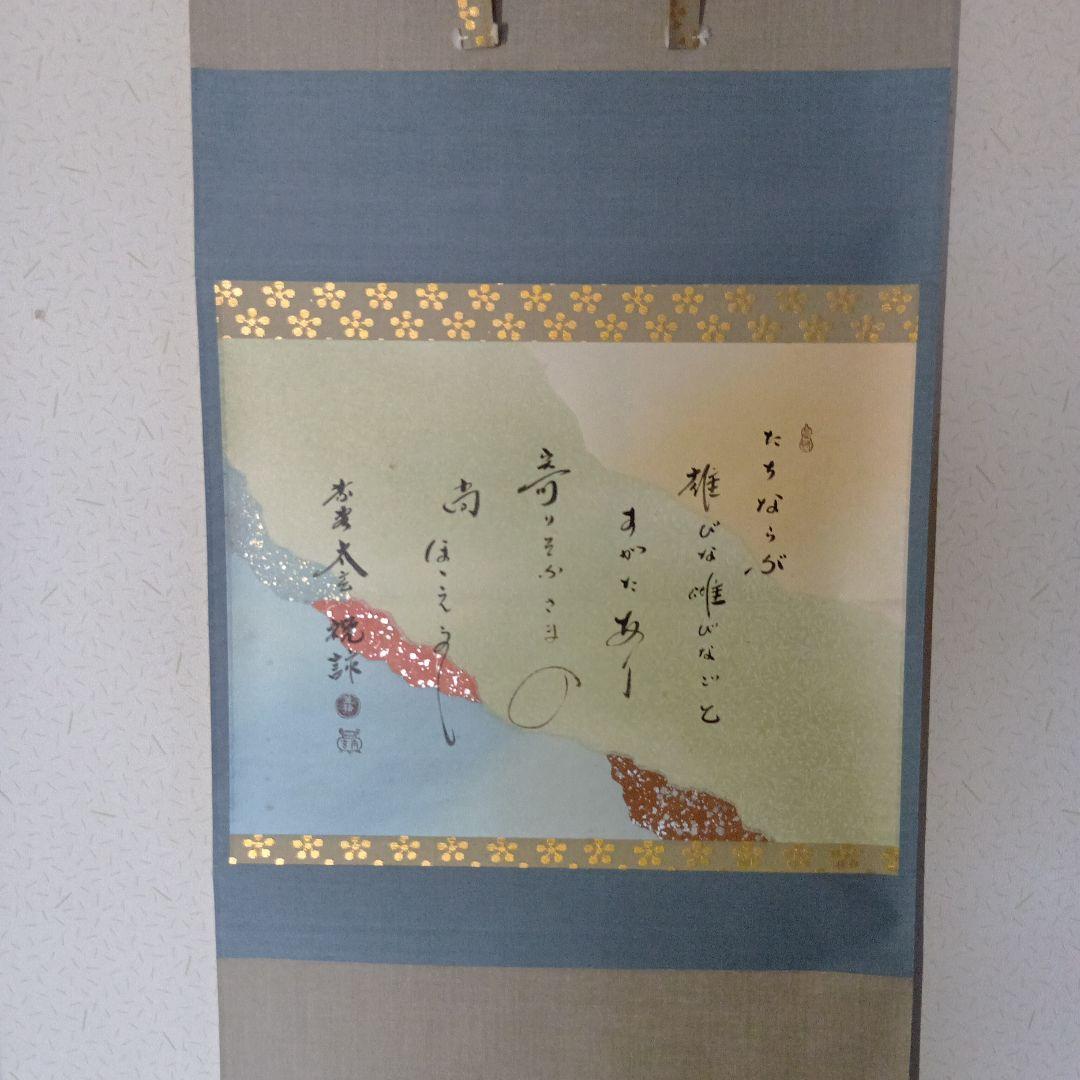 たちならぶ
雄びな雌びなごと
すがたあり
寄りそふさまの
尚ほゝえまし